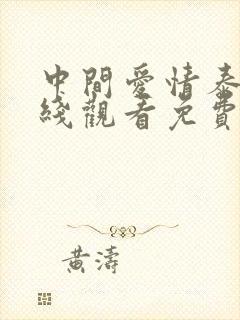 中間愛情泰
綫觀看免費
黃濤